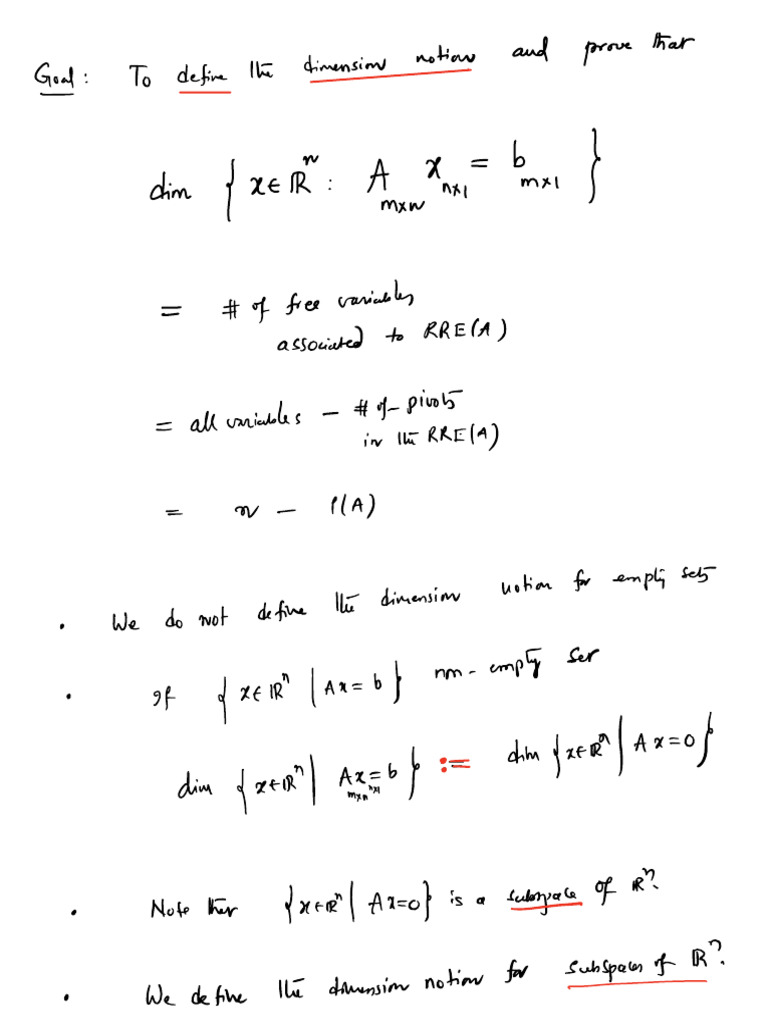 Goal: To define the dimension notion and prove that
dim { x ∈ ℝⁿ : A_{m×n} x_{n×1} = b_{m×1} }
= # of free variables
associated to RRE(A)
= all variables - # of pivots
in the RRE(A)
= n - ρ(A)
• We do not define the dimension notion for empty sets
• If { x ∈ ℝⁿ | Ax = b } non-empty set
dim { x ∈ ℝⁿ | A_{m×n} x_{n×1} = b } := dim { x ∈ ℝⁿ | Ax = 0 }
• Note that { x ∈ ℝⁿ | Ax = 0 } is a subspace of ℝⁿ.
• We define the dimension notion for subspaces of ℝⁿ.